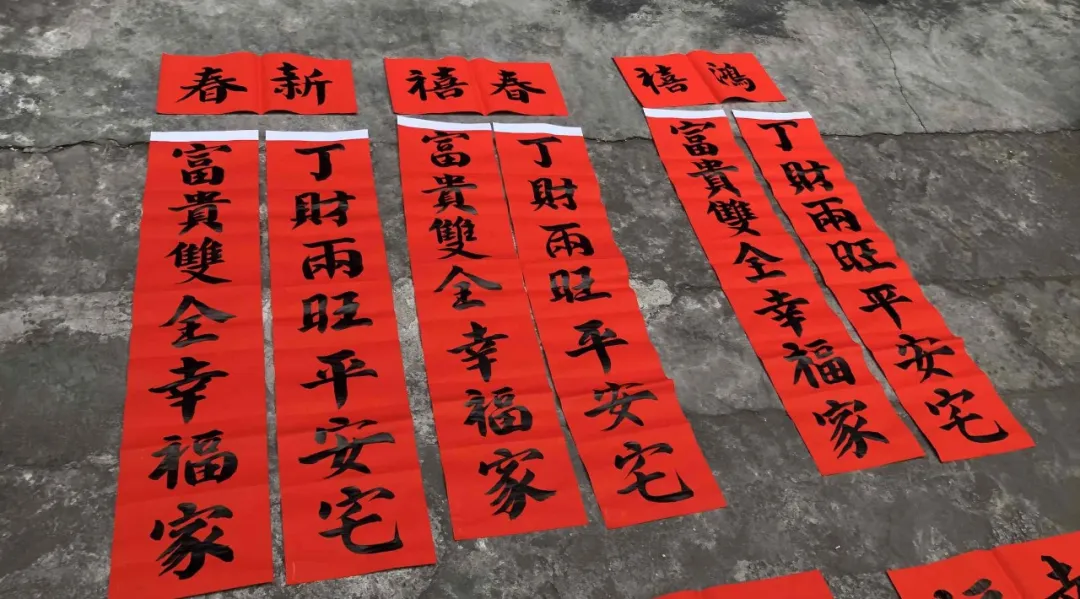 新春
丁財兩旺平安宅
富貴雙全幸福家
春禧
丁財兩旺平安宅
富貴雙全幸福家
鴻禧
丁財兩旺平安宅
富貴雙全幸福家